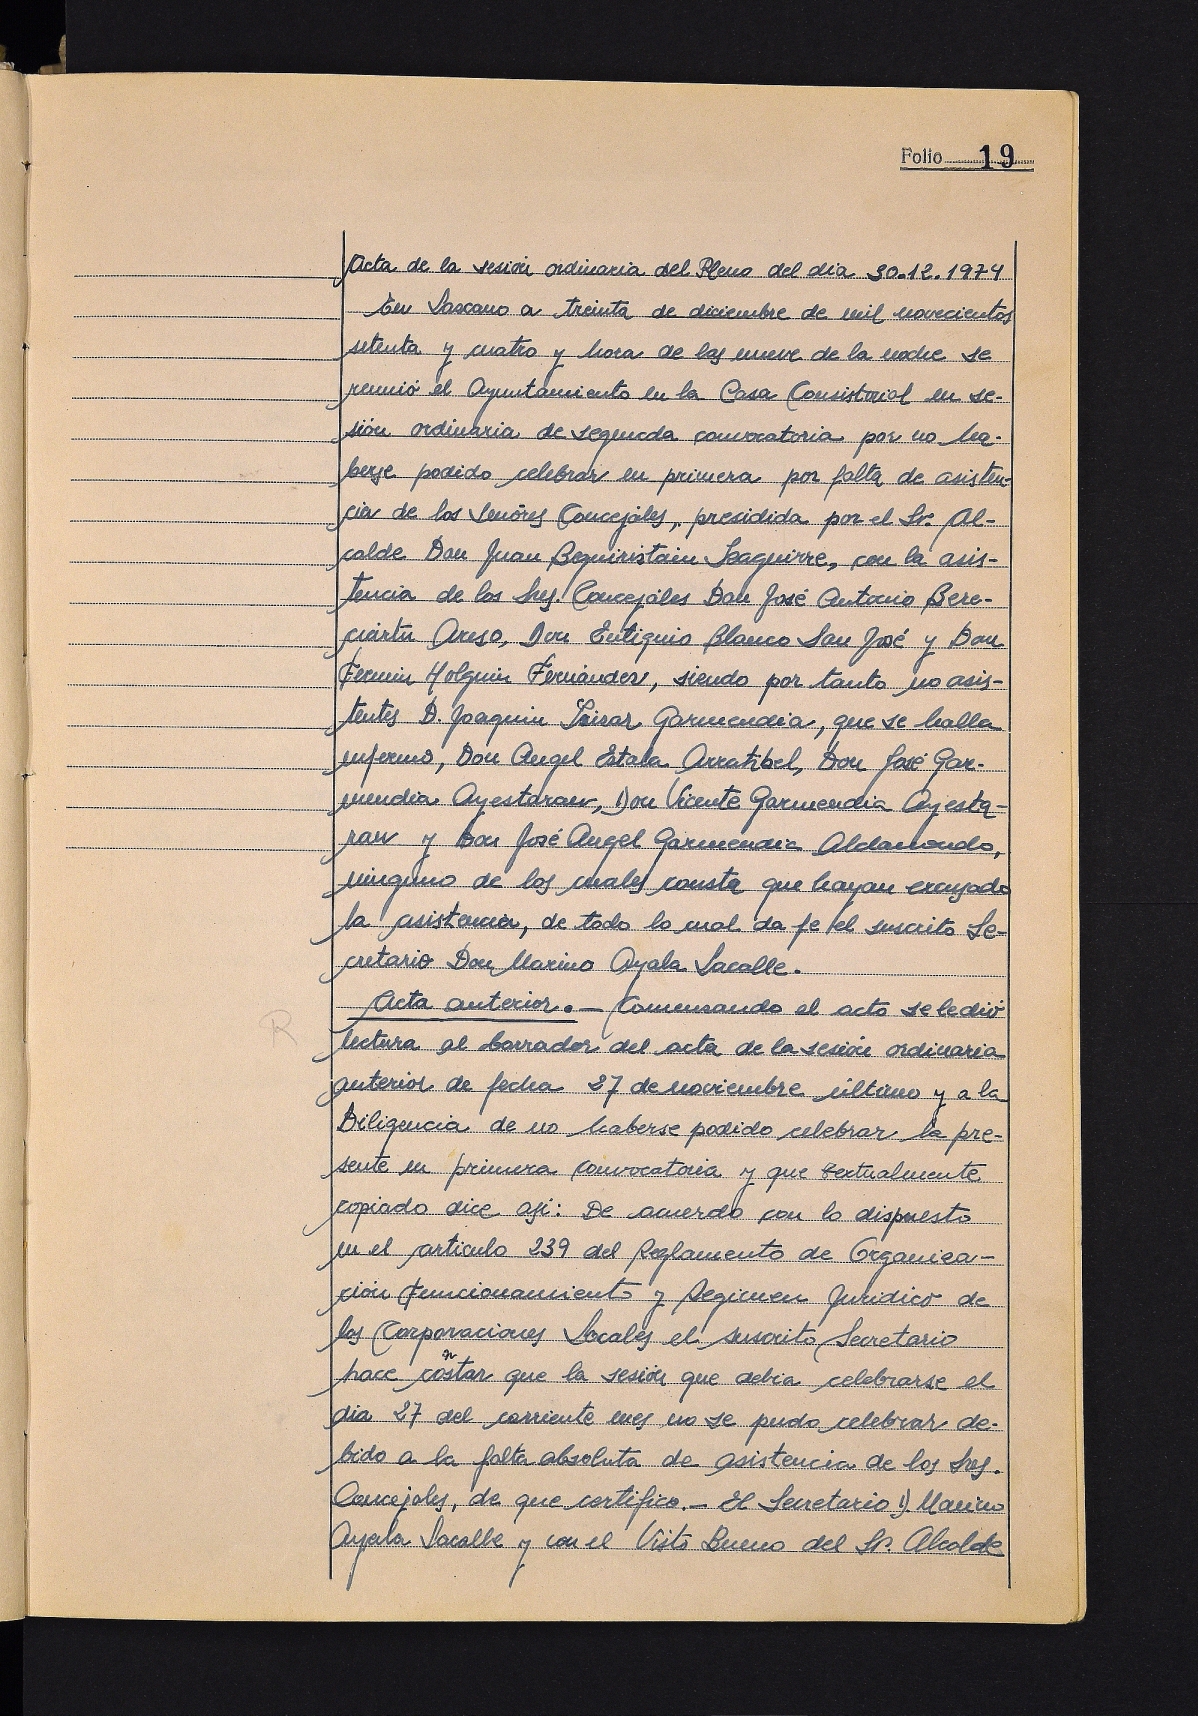 Folio 19
Acta de la sesión ordinaria del Pleno del dia 30.12.1974
En Lazcano a treinta de diciembre de mil novecientos
setenta y cuatro y hora de las nueve de la noche se
reunió el Ayuntamiento en la Casa Consistorial en se-
sión ordinaria de segunda convocatoria por no ha-
berse podido celebrar en primera por falta de asisten-
cia de los Señores Concejales, presidida por el Sr. Al-
calde Don Juan Beguiristain Leaguirre, con la asis-
tencia de los Sres. Concejales Don José Antonio Bere-
ciartu Areso, Don Eutiquio Blanco San José y Don
Fermin Holguin Fernández, siendo por tanto no asis-
tentes D. Joaquin Garmendia, que se halla
enfermo, Don Angel Estala Arratibel, Don José Gar-
mendia Ayestaran, Don Vicente Garmendia Ayesta-
ran y Don José Angel Garmendia Aldamondo,
ninguno de los cuales consta que hayan excusado
la asistencia, de todo lo cual da fe el suscrito Se-
cretario Don Marino Ayala Lacalle.
Acta anterior.— Comenzando el acto se le dió
R
lectura al borrador del acta de la sesión ordinaria
anterior de fecha 27 de noviembre último y a la
Diligencia de no haberse podido celebrar la pre-
sente en primera convocatoria y que textualmente
copiado dice asi: De acuerdo con lo dispuesto
en el articulo 239 del Reglamento de Organiza-
ción Funcionamiento y Regimen Juridico de
las Corporaciones Locales el suscrito Secretario
hace constar que la sesión que debia celebrarse el
dia 27 del corriente mes no se pudo celebrar de-
bido a la falta absoluta de asistencia de los Sres.
Concejales, de que certifico.— El Secretario D. Marino
Ayala Lacalle y con el Visto Bueno del Sr. Alcalde